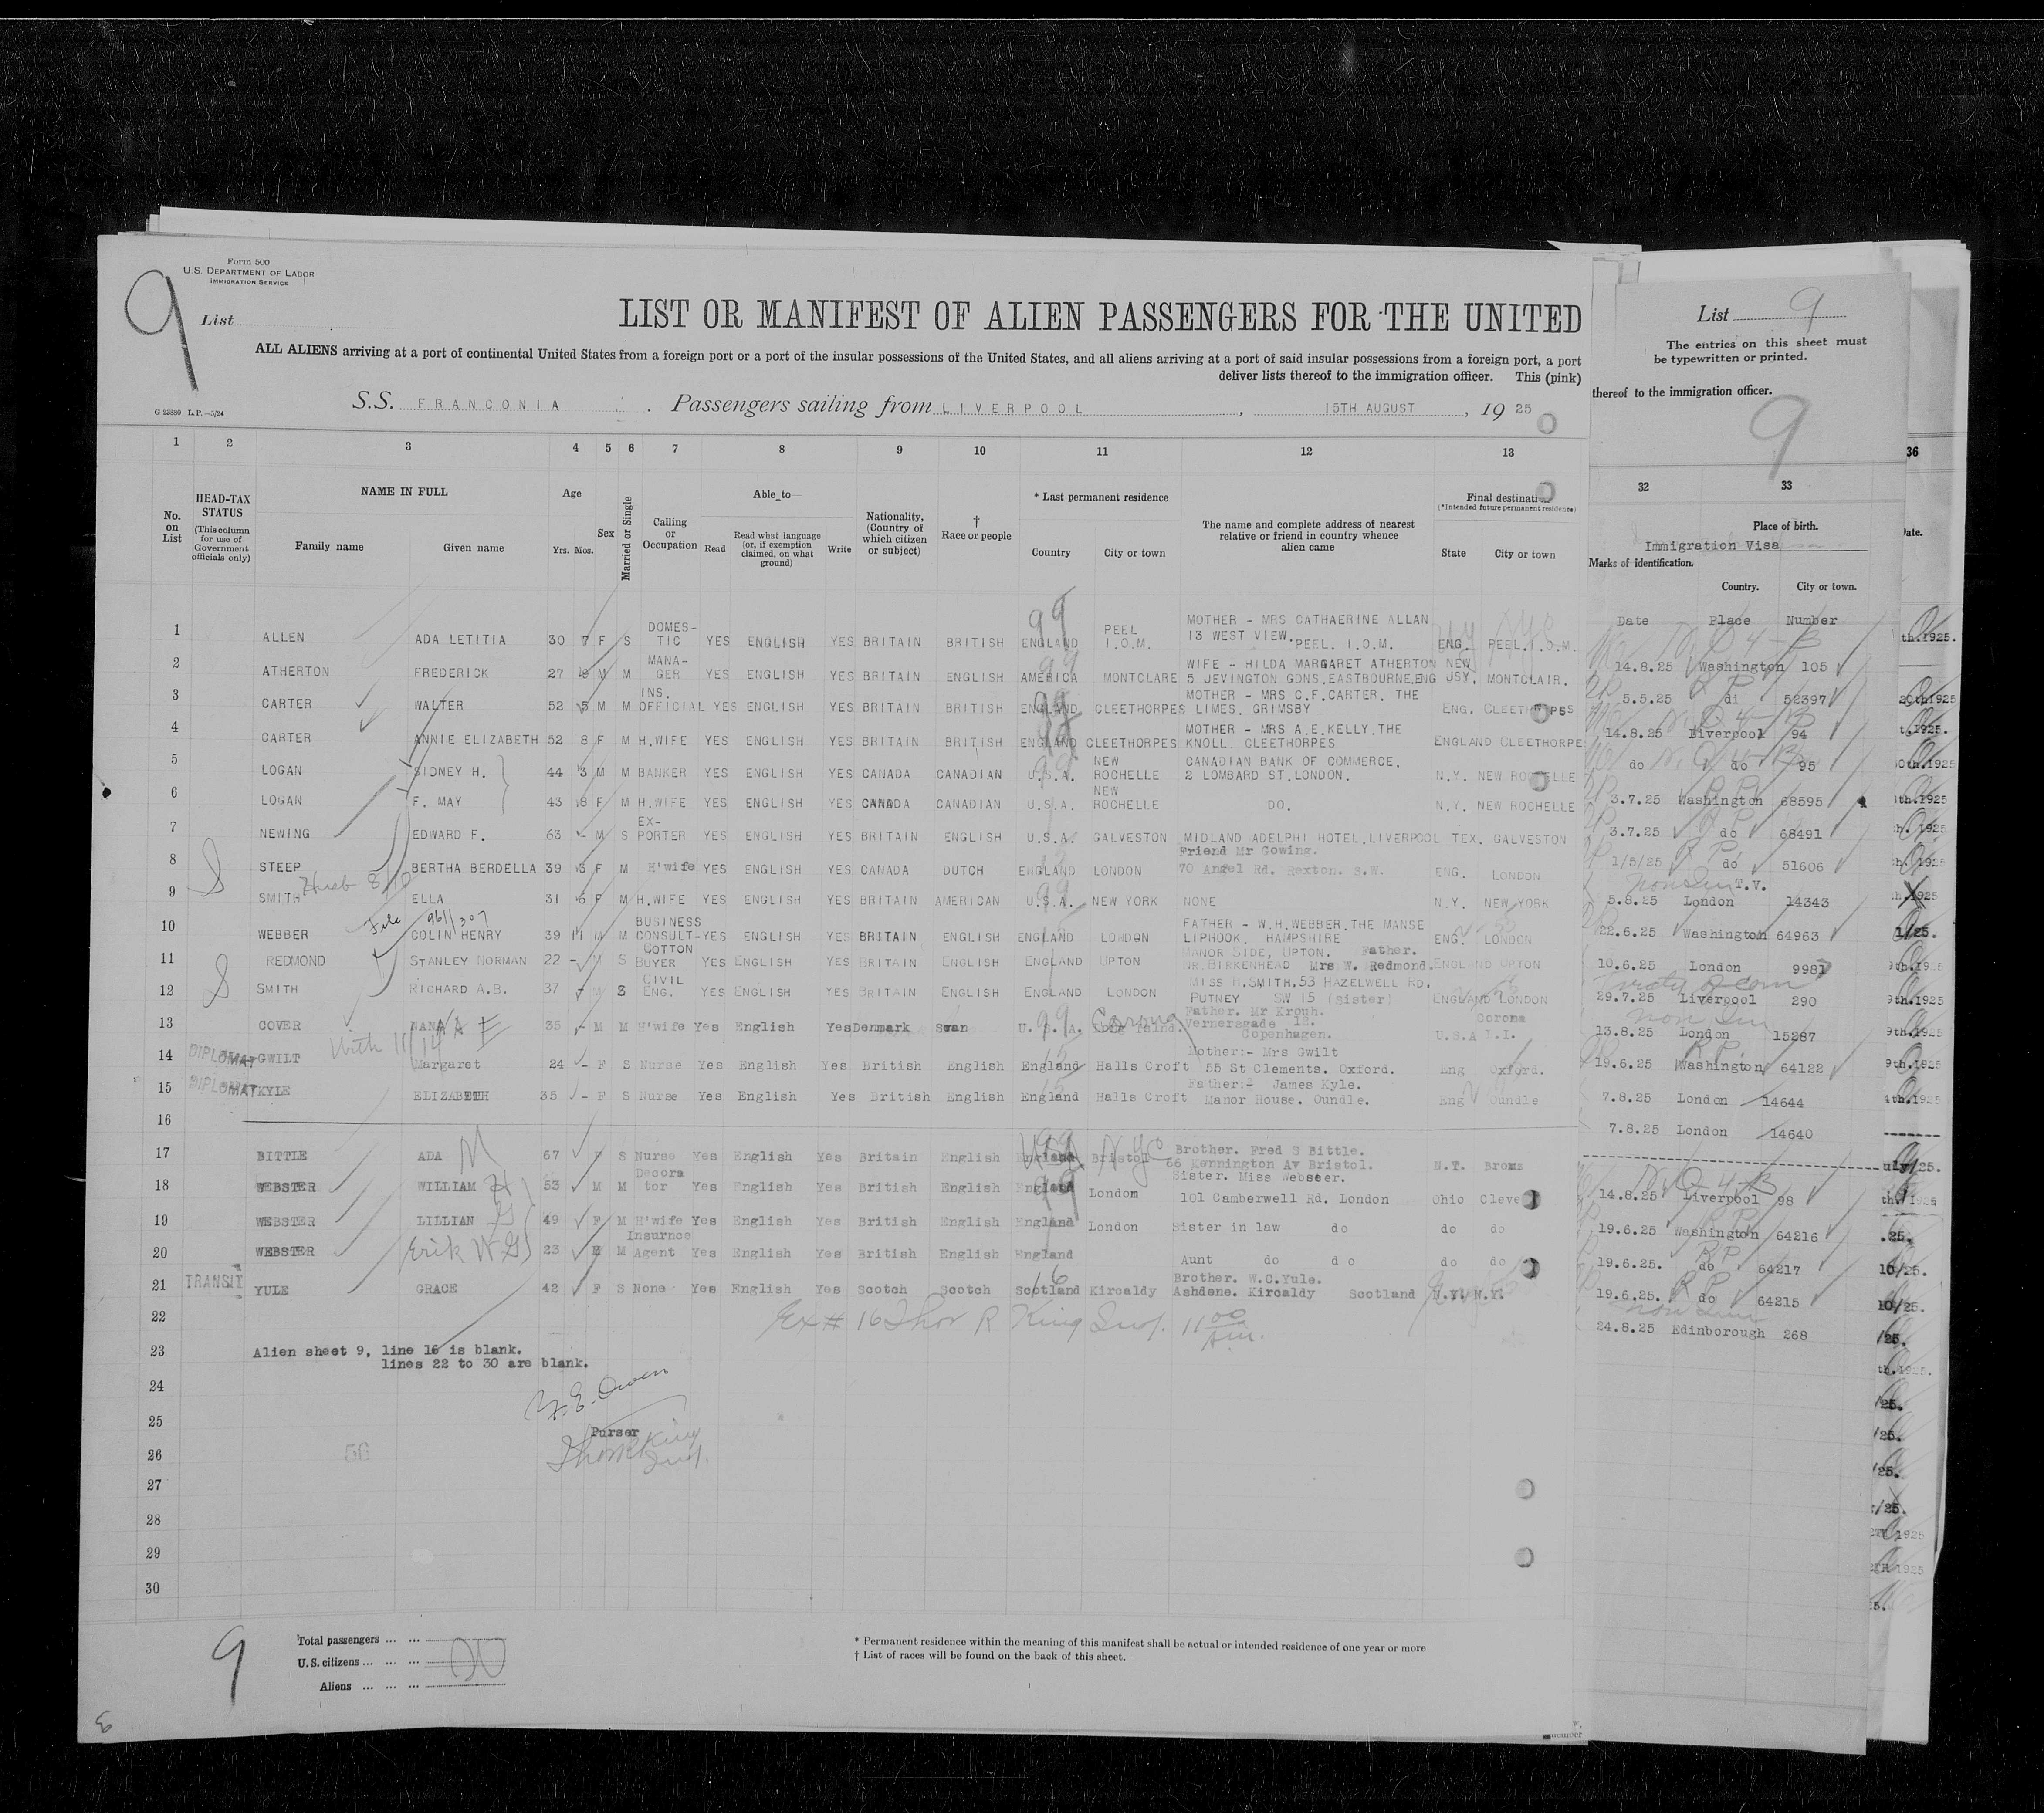 Form 500
U.S. DEPARTMENT OF LABOR
IMMIGRATION SERVICE
9
List
LIST OR MANIFEST OF ALIEN PASSENGERS FOR THE UNITED
ALL ALIENS arriving at a port of continental United States from a foreign port or a port of the insular possessions of the United States, and all aliens arriving at a port of said insular possessions from a foreign port, a port
deliver lists thereof to the immigration officer. This (pink)
G 23880 L.P.—5/24
S.S. FRANCONIA . Passengers sailing from LIVERPOOL , 15TH AUGUST , 19 25
List 9
The entries on this sheet must
be typewritten or printed.
thereof to the immigration officer.
9
1 2 3 4 5 6 7 8 9 10 11 12 13 32 33 36
No. on List
HEAD-TAX STATUS
(This column for use of Government officials only)
NAME IN FULL
Family name Given name
Age
Yrs. Mos.
Sex
Married or Single
Calling or Occupation
Able to—
Read
Read what language (or, if exemption claimed, on what ground)
Write
Nationality, (Country of which citizen or subject)
† Race or people
* Last permanent residence
Country City or town
The name and complete address of nearest relative or friend in country whence alien came
Final destinati
(*Intended future permanent residence)
State City or town
Place of birth.
Immigration Visa
Marks of identification.
Country. City or town.
Date Place Number
1 ALLEN ADA LETITIA 30 7 F S DOMES-TIC YES ENGLISH YES BRITAIN BRITISH ENGLAND PEEL I.O.M. MOTHER - MRS CATHAERINE ALLAN 13 WEST VIEW. PEEL. I.O.M. ENG. PEEL.I.O.M. 14.8.25 Washington 105
2 ATHERTON FREDERICK 27 M M MANA-GER YES ENGLISH YES BRITAIN ENGLISH AMERICA MONTCLARE WIFE - HILDA MARGARET ATHERTON 5 JEVINGTON GDNS.EASTBOURNE,ENG NEW JSY. MONTCLAIR. 5.5.25 di 52397
3 CARTER WALTER 52 5 M M INS. OFFICIAL YES ENGLISH YES BRITAIN BRITISH ENGLAND CLEETHORPES MOTHER - MRS C.F.CARTER. THE LIMES. GRIMSBY ENG. 14.8.25 Liverpool 94
4 CARTER ANNIE ELIZABETH 52 8 F M H.WIFE YES ENGLISH YES BRITAIN BRITISH ENGLAND CLEETHORPES MOTHER - MRS A.E.KELLY.THE KNOLL. CLEETHORPES ENGLAND CLEETHORPE do do 95
5 LOGAN SIDNEY H. 44 3 M M BANKER YES ENGLISH YES CANADA CANADIAN U.S.A. NEW ROCHELLE CANADIAN BANK OF COMMERCE. 2 LOMBARD ST.LONDON. N.Y. NEW ROCHELLE 3.7.25 Washington 68595
6 LOGAN F. MAY 43 8 F M H.WIFE YES ENGLISH YES CANADA CANADIAN U.S.A. NEW ROCHELLE DO. N.Y. NEW ROCHELLE 3.7.25 do 68491
7 NEWING EDWARD F. 63 - M S EX-PORTER YES ENGLISH YES BRITAIN ENGLISH U.S.A. GALVESTON MIDLAND ADELPHI HOTEL,LIVERPOOL TEX. GALVESTON 1/5/25 do 51606
8 STEEP BERTHA BERDELLA 39 3 F M H'wife YES ENGLISH YES CANADA DUTCH ENGLAND LONDON Friend Mr Gowing. 70 Angel Rd. Rexton. S.W. ENG. LONDON T.V. 5.8.25 London 14343
Husb 8/10
9 SMITH ELLA 31 6 F M H.WIFE YES ENGLISH YES BRITAIN AMERICAN U.S.A. NEW YORK NONE N.Y. NEW YORK 22.6.25 Washington 64963
File 961/307
10 WEBBER COLIN HENRY 39 11 M M BUSINESS CONSULT- YES ENGLISH YES BRITAIN ENGLISH ENGLAND LONDON FATHER - W.H.WEBBER.THE MANSE LIPHOOK. HAMPSHIRE ENG. LONDON 10.6.25 London 9981
11 REDMOND STANLEY NORMAN 22 - S COTTON BUYER YES ENGLISH YES BRITAIN ENGLISH ENGLAND UPTON MANOR SIDE, UPTON. Father. NR.BIRKENHEAD Mrs W. Redmond. ENGLAND UPTON 29.7.25 Liverpool 290
12 SMITH RICHARD A.B. 37 M S CIVIL ENG. YES ENGLISH YES BRITAIN ENGLISH ENGLAND LONDON MISS H.SMITH.53 HAZELWELL RD. PUTNEY SW 15 (Sister) ENGLAND LONDON 13.8.25 London 15287
13 COVER NANA 35 - M M H'wife Yes English Yes Denmark U.S.A. Corona Long Islnd. Father. Mr Krouh. Vernersgade 12. Copenhagen. U.S.A Corona L.I. 19.6.25 Washington 64122
With 11/14
14 DIPLOMAT GWILT Margaret 24 - F S Nurse Yes English Yes British English England Halls Croft Mother:- Mrs Gwilt 55 St Clements. Oxford. Eng Oxford. 7.8.25 London 14644
15 DIPLOMAT KYLE ELIZABETH 35 - F S Nurse Yes English Yes British English England Halls Croft Father:- James Kyle. Manor House. Oundle. Eng Oundle 7.8.25 London 14640
16
17 BITTLE ADA M 67 F S Nurse Yes English Yes Britain English England Bristol N.Y.C Brother. Fred S Bittle. 66 Kennington Av Bristol. N.T. Bronx 14.8.25 Liverpool 98
18 WEBSTER WILLIAM H 53 M M Decorator Yes English Yes British English England London Sister. Miss Webster. 101 Camberwell Rd. London Ohio Cleve 19.6.25 Washington 64216
19 WEBSTER LILLIAN G 49 F M H'wife Yes English Yes British English England London Sister in law do do do 19.6.25. do 64217
20 WEBSTER Erik W G 23 M M Insurnce Agent Yes English Yes British English England Aunt do do do do 19.6.25. do 64215
21 TRANSIT YULE GRACE 42 F S None Yes English Yes Scotch Scotch Scotland Kircaldy Brother. W.C.Yule. Ashdene. Kircaldy Scotland N.Y. N.Y. 24.8.25 Edinborough 268
22 Ex # 16 Thor R King Insp. 11 00 Am.
23 Alien sheet 9, line 16 is blank.
lines 22 to 30 are blank.
24
25
Purser
26 56
Thor R King Insp.
27
28
29
30
9
Total passengers ... ...
U.S. citizens ... ... ...
Aliens ... ... ...
* Permanent residence within the meaning of this manifest shall be actual or intended residence of one year or more
† List of races will be found on the back of this sheet.